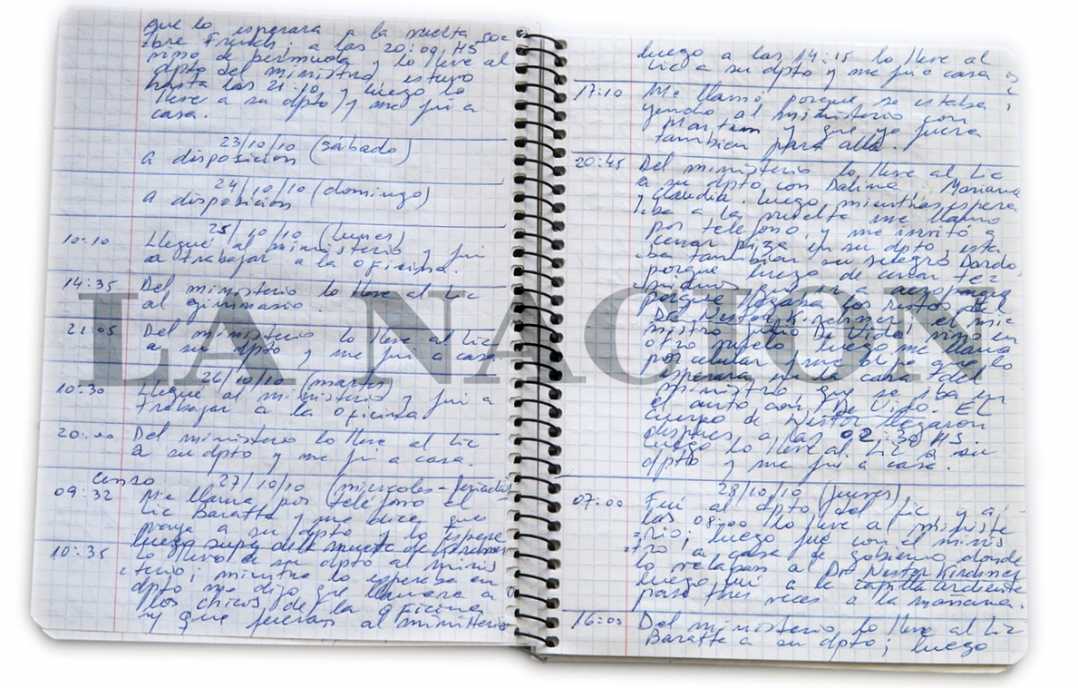 que lo esperara a la vuelta, soc
bre French; a las 20:09 HS
vino de bermuda y lo lleve al
dpto del ministro, estuvo
hasta las 21:10 y luego lo
lleve a su dpto y me fui a
casa.
23/10/10 (sábado)
a disposición
24/10/10 (domingo)
a disposición
25/10/10 (lunes)
10:10 Llegué al ministerio y fui
a trabajar a la oficina.
14:35 Del ministerio lo lleve al Lic
al gimnasio.
21:05 Del ministerio lo lleve al Lic
a su dpto y me fui a casa
26/10/10 (martes)
10:30 Llegue al ministerio y fui a
trabajar a la oficina
20:00 Del ministerio lo lleve al Lic
a su dpto y me fui a casa.
censo 27/10/10 (miercoles - feriado)
09:32 Me llama por teléfono el
Lic Baratta y me dice que
vaya a su dpto y lo espere
luego supe del muerte de Kirchner
10:35 lo llevo de su dpto al minis
terio; mientra lo esperaba en
dpto me dijo que llamara a
los chicos de la oficina
y que fueran al ministerio
luego a las 14:15 lo lleve al
Lic a su dpto y me fui a casa
17:10 Me llamó porque se estaba
yendo al ministerio con
Martin y que yo fuera
tambien para alla.
20:45 Del ministerio lo lleve al Lic
a su dpto con Dalina, Mariana
y Claudia. Luego, mientras espera
ba a la vuelta me llamo
por telefono, y me invitó a
cenar pizza en su dpto, esta
ba tambien su suegro Dardo,
porque luego de cenar
porque llegaba los restos del
Dr Nestor Kirchner, el mi
nistro Julio De Vido vino en
otro vuelo. Luego me llama
por celular y me dice que lo
esperara en la casa del
ministro que se iba en
el auto con De Vido. El
cuerpo de Nestor llegaron
despues a las 02:30 HS.
Luego lo lleve al Lic a su
dpto y me fui a casa.
28/10/10 (jueves)
07:00 Fui al dpto del Lic y a
las 08:00 lo lleve al ministe
rio; luego fue con el minis
tro a casa de gobierno donde
lo velaban al Dr Nestor Kirchner
luego fui a la capilla ardiente
pase tres veces a la mañana.
16:00 Del ministerio lo lleve al Lic
Baratta a su dpto; luego
LA NACION